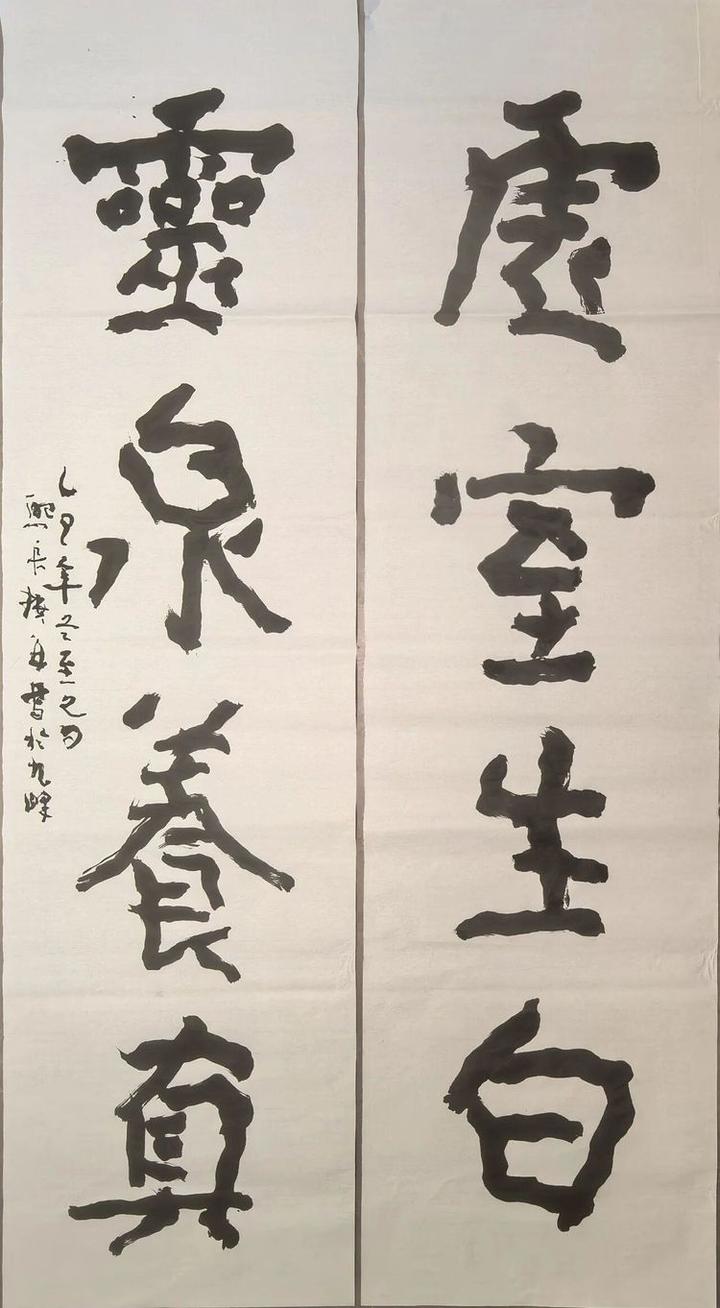 虛室生白
靈泉養真
乙巳年冬至之日
熙長樓主書於九峰